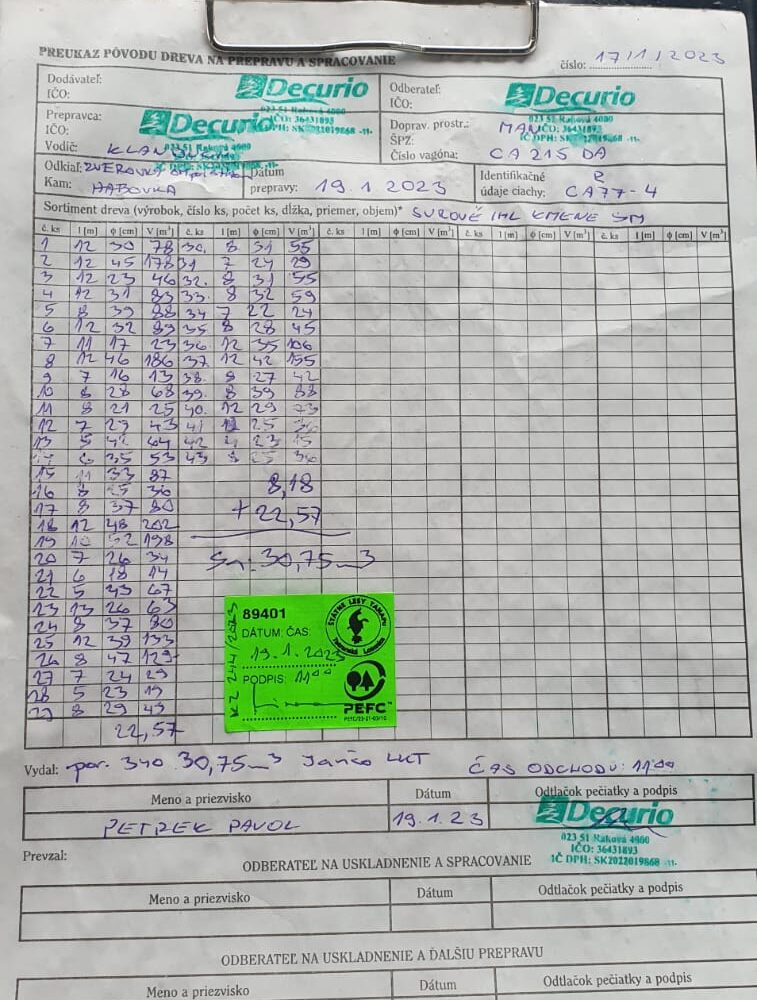 PREUKAZ PÔVODU DREVA NA PREPRAVU A SPRACOVANIE
číslo: 17/1/2023
Dodávateľ:
IČO:
Decurio
023 51 Raková 4900
IČO: 36431893
IČ DPH: SK2022019868 -11-
Odberateľ:
IČO:
Decurio
023 51 Raková 4900
IČO: 36431893
IČ DPH: SK2022019868 -11-
Prepravca:
IČO:
Decurio
Vodič:
Doprav. prostr.: MAN
ŠPZ:
Číslo vagóna: CA 215 DA
Odkiaľ: ZVEROVKA
Kam: HABOVKA
Dátum
prepravy: 19.1 2023
Identifikačné
údaje ciachy: CA77-4
Sortiment dreva (výrobok, číslo ks, počet ks, dĺžka, priemer, objem)* SUROVÉ IHL KMENE SM
č. ks l [m] ϕ [cm] V [m³] č. ks l [m] ϕ [cm] V [m³] č. ks l [m] ϕ [cm] V [m³] č. ks l [m] ϕ [cm] V [m³] č. ks l [m] ϕ [cm] V [m³]
1 12 30 78 30. 8 31 55
2 12 45 178 31 7 24 29
3 12 23 46 32. 8 31 55
4 12 31 83 33. 8 32 59
5 8 39 88 34 7 22 24
6 12 32 89 35 8 28 45
7 11 17 23 36 12 35 106
8 12 46 186 37. 12 42 155
9 7 16 13 38. 8 27 42
10 8 28 68 39. 8 39 88
11 8 21 25 40. 12 29 73
12 7 29 43 41 25 36
13 5 42 64 42 23 15
6 35 53 43 8 25 36
15 11 33 87
16 8 25 36
17 8 37 80
18 12 48 202
19 10 52 198
20 7 26 34
21 6 18 14
22 5 43 67
23 13 26 63
24 8 37 80
25 12 39 133
26 8 47 129
27 7 24 29
28 5 23 19
29 8 29 49
22,57
8,18
+ 22,57
30,75 m3
89401
DÁTUM: ČAS:
19.1.2023
PODPIS: 11⁰⁰
ŠTÁTNE LESY TANAPU
Tatranská Lomnica
PEFC™
KZ 244/2023
Vydal: por. 340 30,75 m3 Jančo LKT ČAS ODCHODU: 11⁰⁰
Meno a priezvisko Dátum Odtlačok pečiatky a podpis
PETREK PAVOL 19.1.23
Decurio
023 51 Raková 4900
IČO: 36431893
IČ DPH: SK2022019868 -11-
Prevzal:
ODBERATEĽ NA USKLADNENIE A SPRACOVANIE
Meno a priezvisko Dátum Odtlačok pečiatky a podpis
ODBERATEĽ NA USKLADNENIE A ĎALŠIU PREPRAVU
Meno a priezvisko Dátum Odtlačok pečiatky a podpis